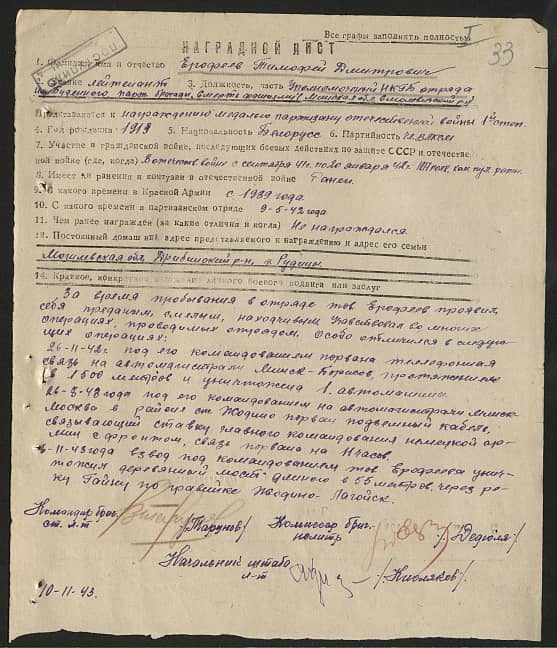 Все графы заполнять полностью
33
НАГРАДНОЙ ЛИСТ
1. Фамилия, имя и отчество Ерофеев Тимофей Дмитрович
2. Звание лейтенант 3. Должность, часть Уполномоченный НКГБ отряда
им. Буденного парт. бригады „Смерть фашизму“ Минской обл. Смолевичский р-н
Представляется к награждению медалью партизану отечественной войны 1й степ.
4. Год рождения 1919 5. Национальность Белорус 6. Партийность чл. ВЛКСМ
7. Участие в гражданской войне, последующих боевых действиях по защите СССР и отечествен-
ной войне (где, когда) В отечеств. войне с сентября 41г. по 20 января 42г.
8. Имеет ли ранения и контузии в отечественной войне Ранен
9. С какого времени в Красной Армии с 1939 года.
10. С какого времени в партизанском отряде 9-5-42 года.
11. Чем ранее награжден (за какие отличия и когда) Не награждался.
12. Постоянный домашний адрес представляемого к награждению и адрес его семьи
Могилевская обл, Дрибинский р-н, д. Рудицы
14. Краткое, конкретное изложение личного боевого подвига или заслуг
За время пребывания в отряде тов Ерофеев проявил
себя преданным, смелым, находчивым. Участвовал во многих
операциях, проводимых отрядом. Особо отличился в следую-
щих операциях:
26-11-42г. под его командованием порвана телефонная
связь на автомагистрали Минск-Борисов, протяжением
в 1500 метров и уничтожена 1. автомашина
26-8-43 года под его командованием на автомагистрали Минск-
Москва в районе ст. Жодино порван подземный кабель,
связывающий ставку главного командования немецкой ар-
мии с фронтом, связь порвана на 14 часов.
-11-43 года взвод под командованием тов Ерофеева унич-
тожил деревянный мост длиною в 55 метров, через ре-
ку Гайну по гравийке Жодино-Логойск.
Командир бриг.
ст. л-т /Тарунов/ Комиссар бриг.
политр. /Дедюля/
Начальник штаба
л-т /Кисляков/
10-11-43.